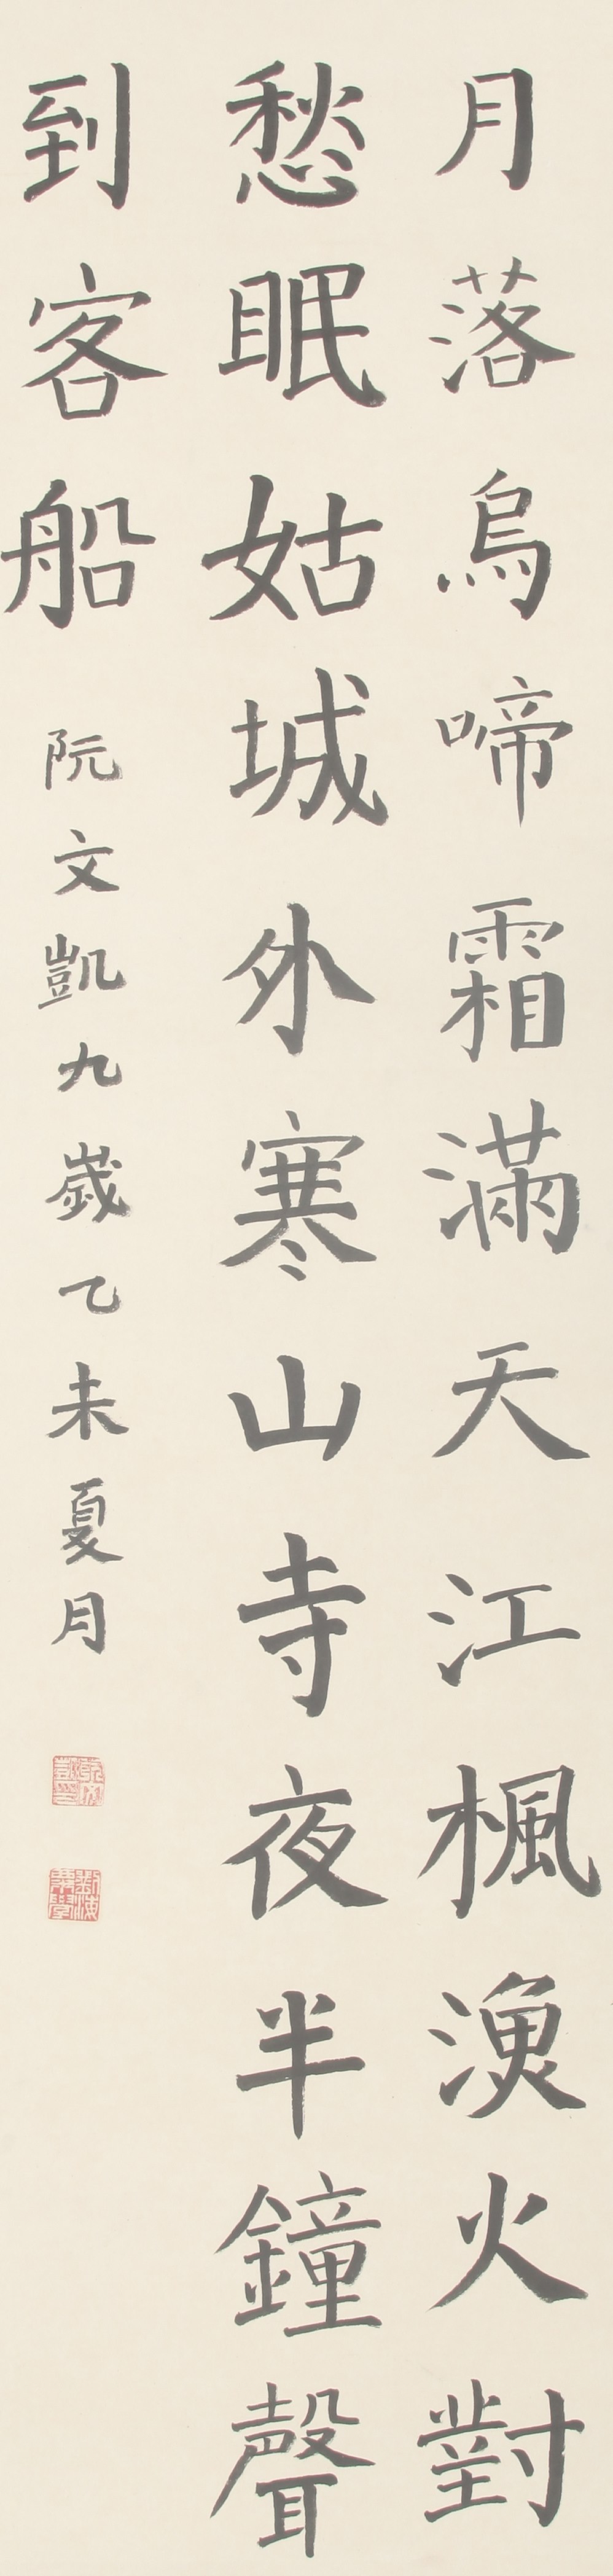 月落烏啼霜滿天江楓漁火對
愁眠姑城外寒山寺夜半鐘聲
到客船
阮文凱九歲乙未夏月